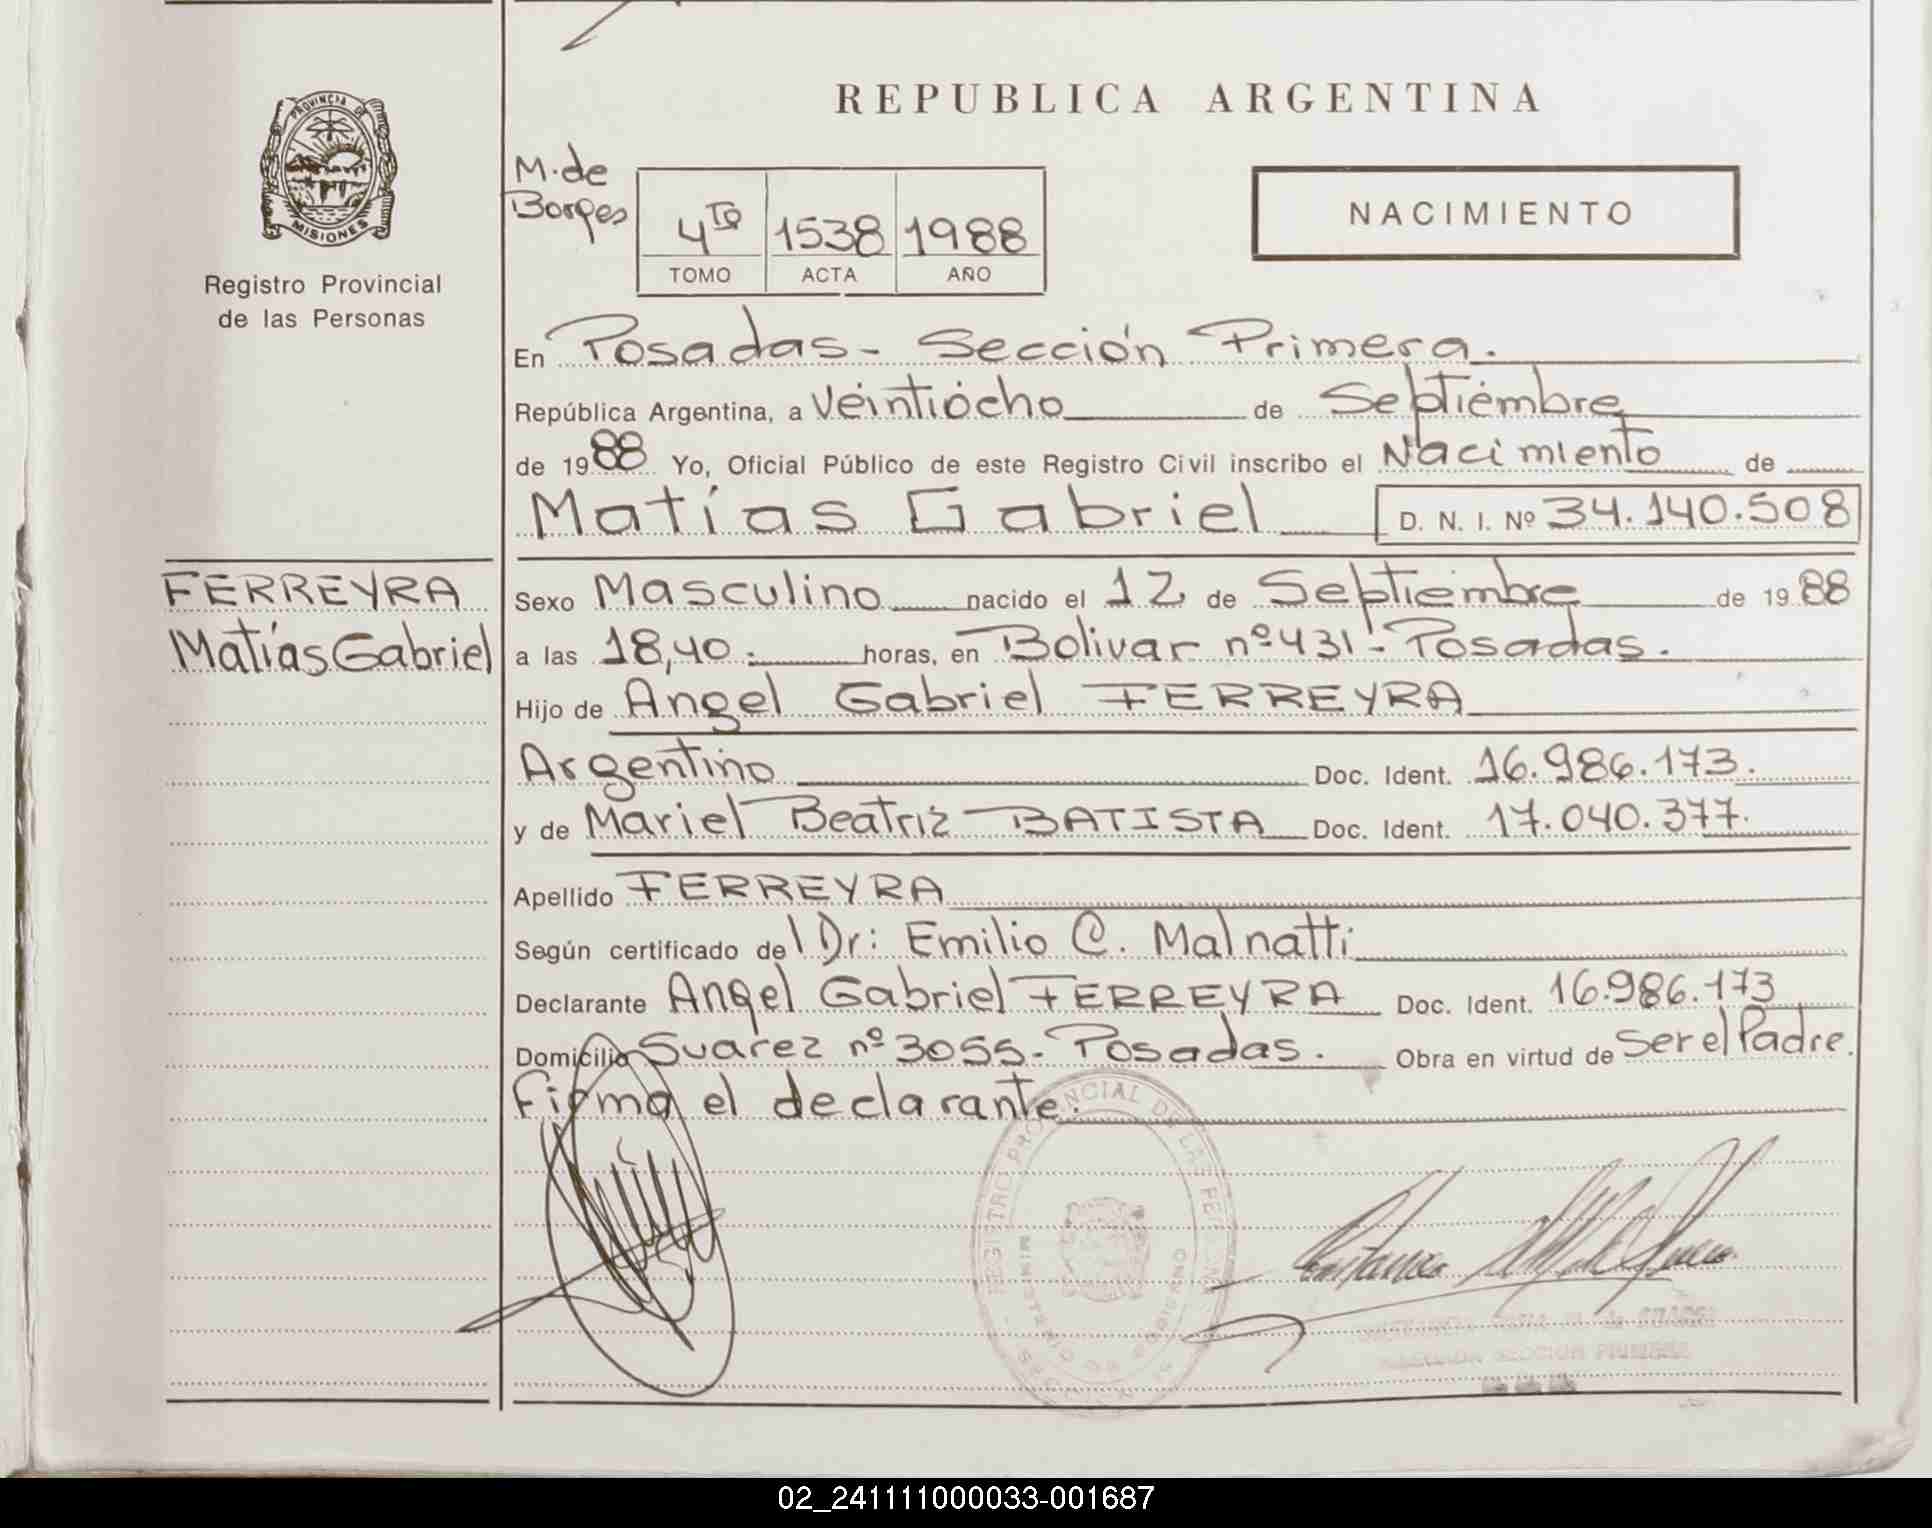 REPUBLICA ARGENTINA
PROVINCIA DE MISIONES
Registro Provincial
de las Personas
M. de
Borges
4to 1538 1988
TOMO ACTA AÑO
NACIMIENTO
En Posadas - Sección Primera.
República Argentina, a Veintiocho de Septiembre
de 1988 Yo, Oficial Público de este Registro Civil inscribo el Nacimiento de
Matías Gabriel D. N. I. Nº 34.140.508
FERREYRA
Matías Gabriel
Sexo Masculino nacido el 12 de Septiembre de 1988
a las 18,40. horas, en Bolivar nº 431 - Posadas.
Hijo de Angel Gabriel FERREYRA
Argentino Doc. Ident. 16.986.173.
y de Mariel Beatriz BATISTA Doc. Ident. 17.040.377.
Apellido FERREYRA
Según certificado del Dr: Emilio C. Malnatti
Declarante Angel Gabriel FERREYRA Doc. Ident. 16.986.173
Domicilio Suarez nº 3055 - Posadas. Obra en virtud de Ser el Padre.
Firma el declarante.
REGISTRO PROVINCIAL DE LAS PERSONAS
MINISTERIO DE GOBIERNO
SECCION
SECCION PRIMERA
02_241111000033-001687